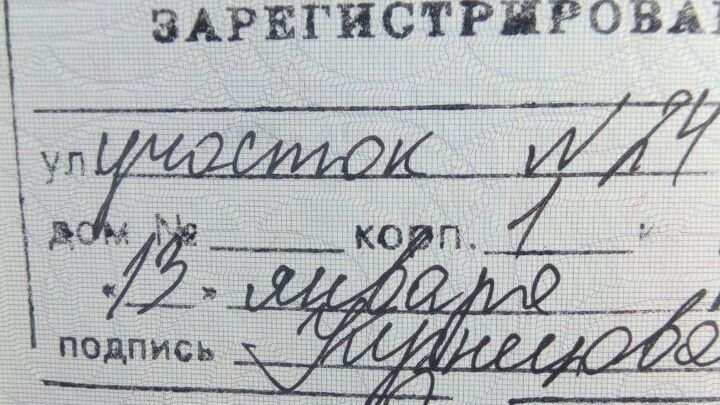 ЗАРЕГИСТРИРОВА
ул участок № 24
дом № корп. 1 к
"13" января
подпись Кузнецова